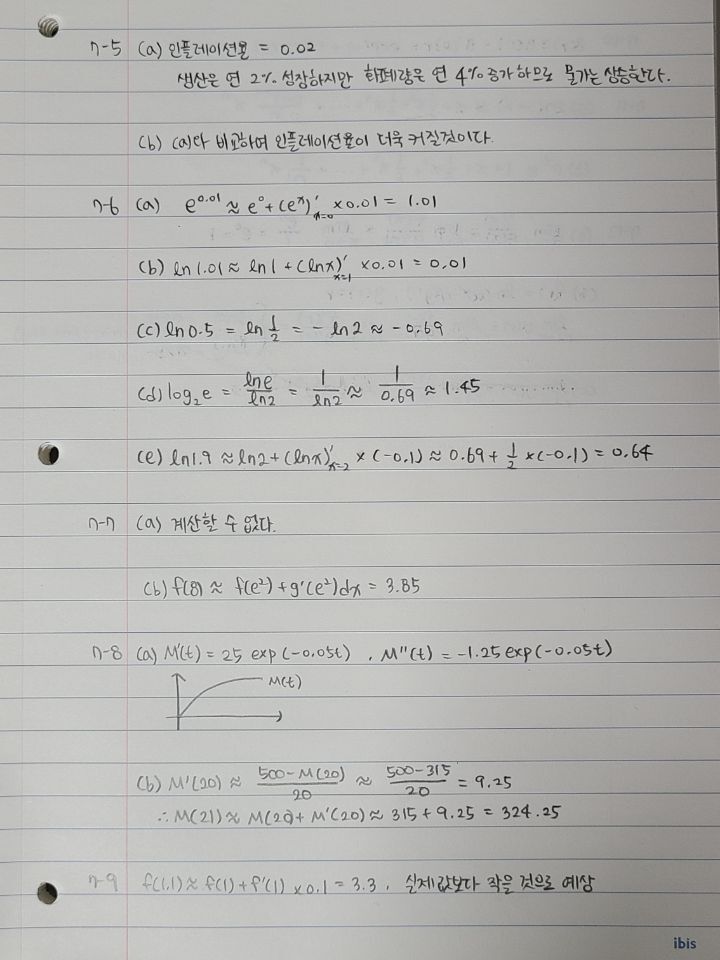 7-5 (a) 인플레이션율 = 0.02
생산은 연 2% 성장하지만 화폐량은 연 4% 증가하므로 물가는 상승한다.
(b) (a)와 비교하여 인플레이션율이 더욱 커질것이다.
7-6 (a) e^0.01 ≈ e^0 + (e^x)'_{x=0} × 0.01 = 1.01
(b) ln 1.01 ≈ ln 1 + (ln x)'_{x=1} × 0.01 = 0.01
(c) ln 0.5 = ln 1/2 = - ln 2 ≈ -0.69
(d) log_2 e = ln e / ln 2 = 1 / ln 2 ≈ 1 / 0.69 ≈ 1.45
(e) ln 1.9 ≈ ln 2 + (ln x)'_{x=2} × (-0.1) ≈ 0.69 + 1/2 × (-0.1) = 0.64
7-7 (a) 계산할 수 없다.
(b) f(8) ≈ f(e²) + g'(e²)dx = 3.85
7-8 (a) M'(t) = 25 exp(-0.05t) , M''(t) = -1.25 exp(-0.05t)
M(t)
(b) M'(20) ≈ 500-M(20) / 20 ≈ 500-315 / 20 = 9.25
∴ M(21) ≈ M(20) + M'(20) ≈ 315 + 9.25 = 324.25
7-9 f(1.1) ≈ f(1) + f'(1) × 0.1 = 3.3 , 실제값보다 작을 것으로 예상
ibis